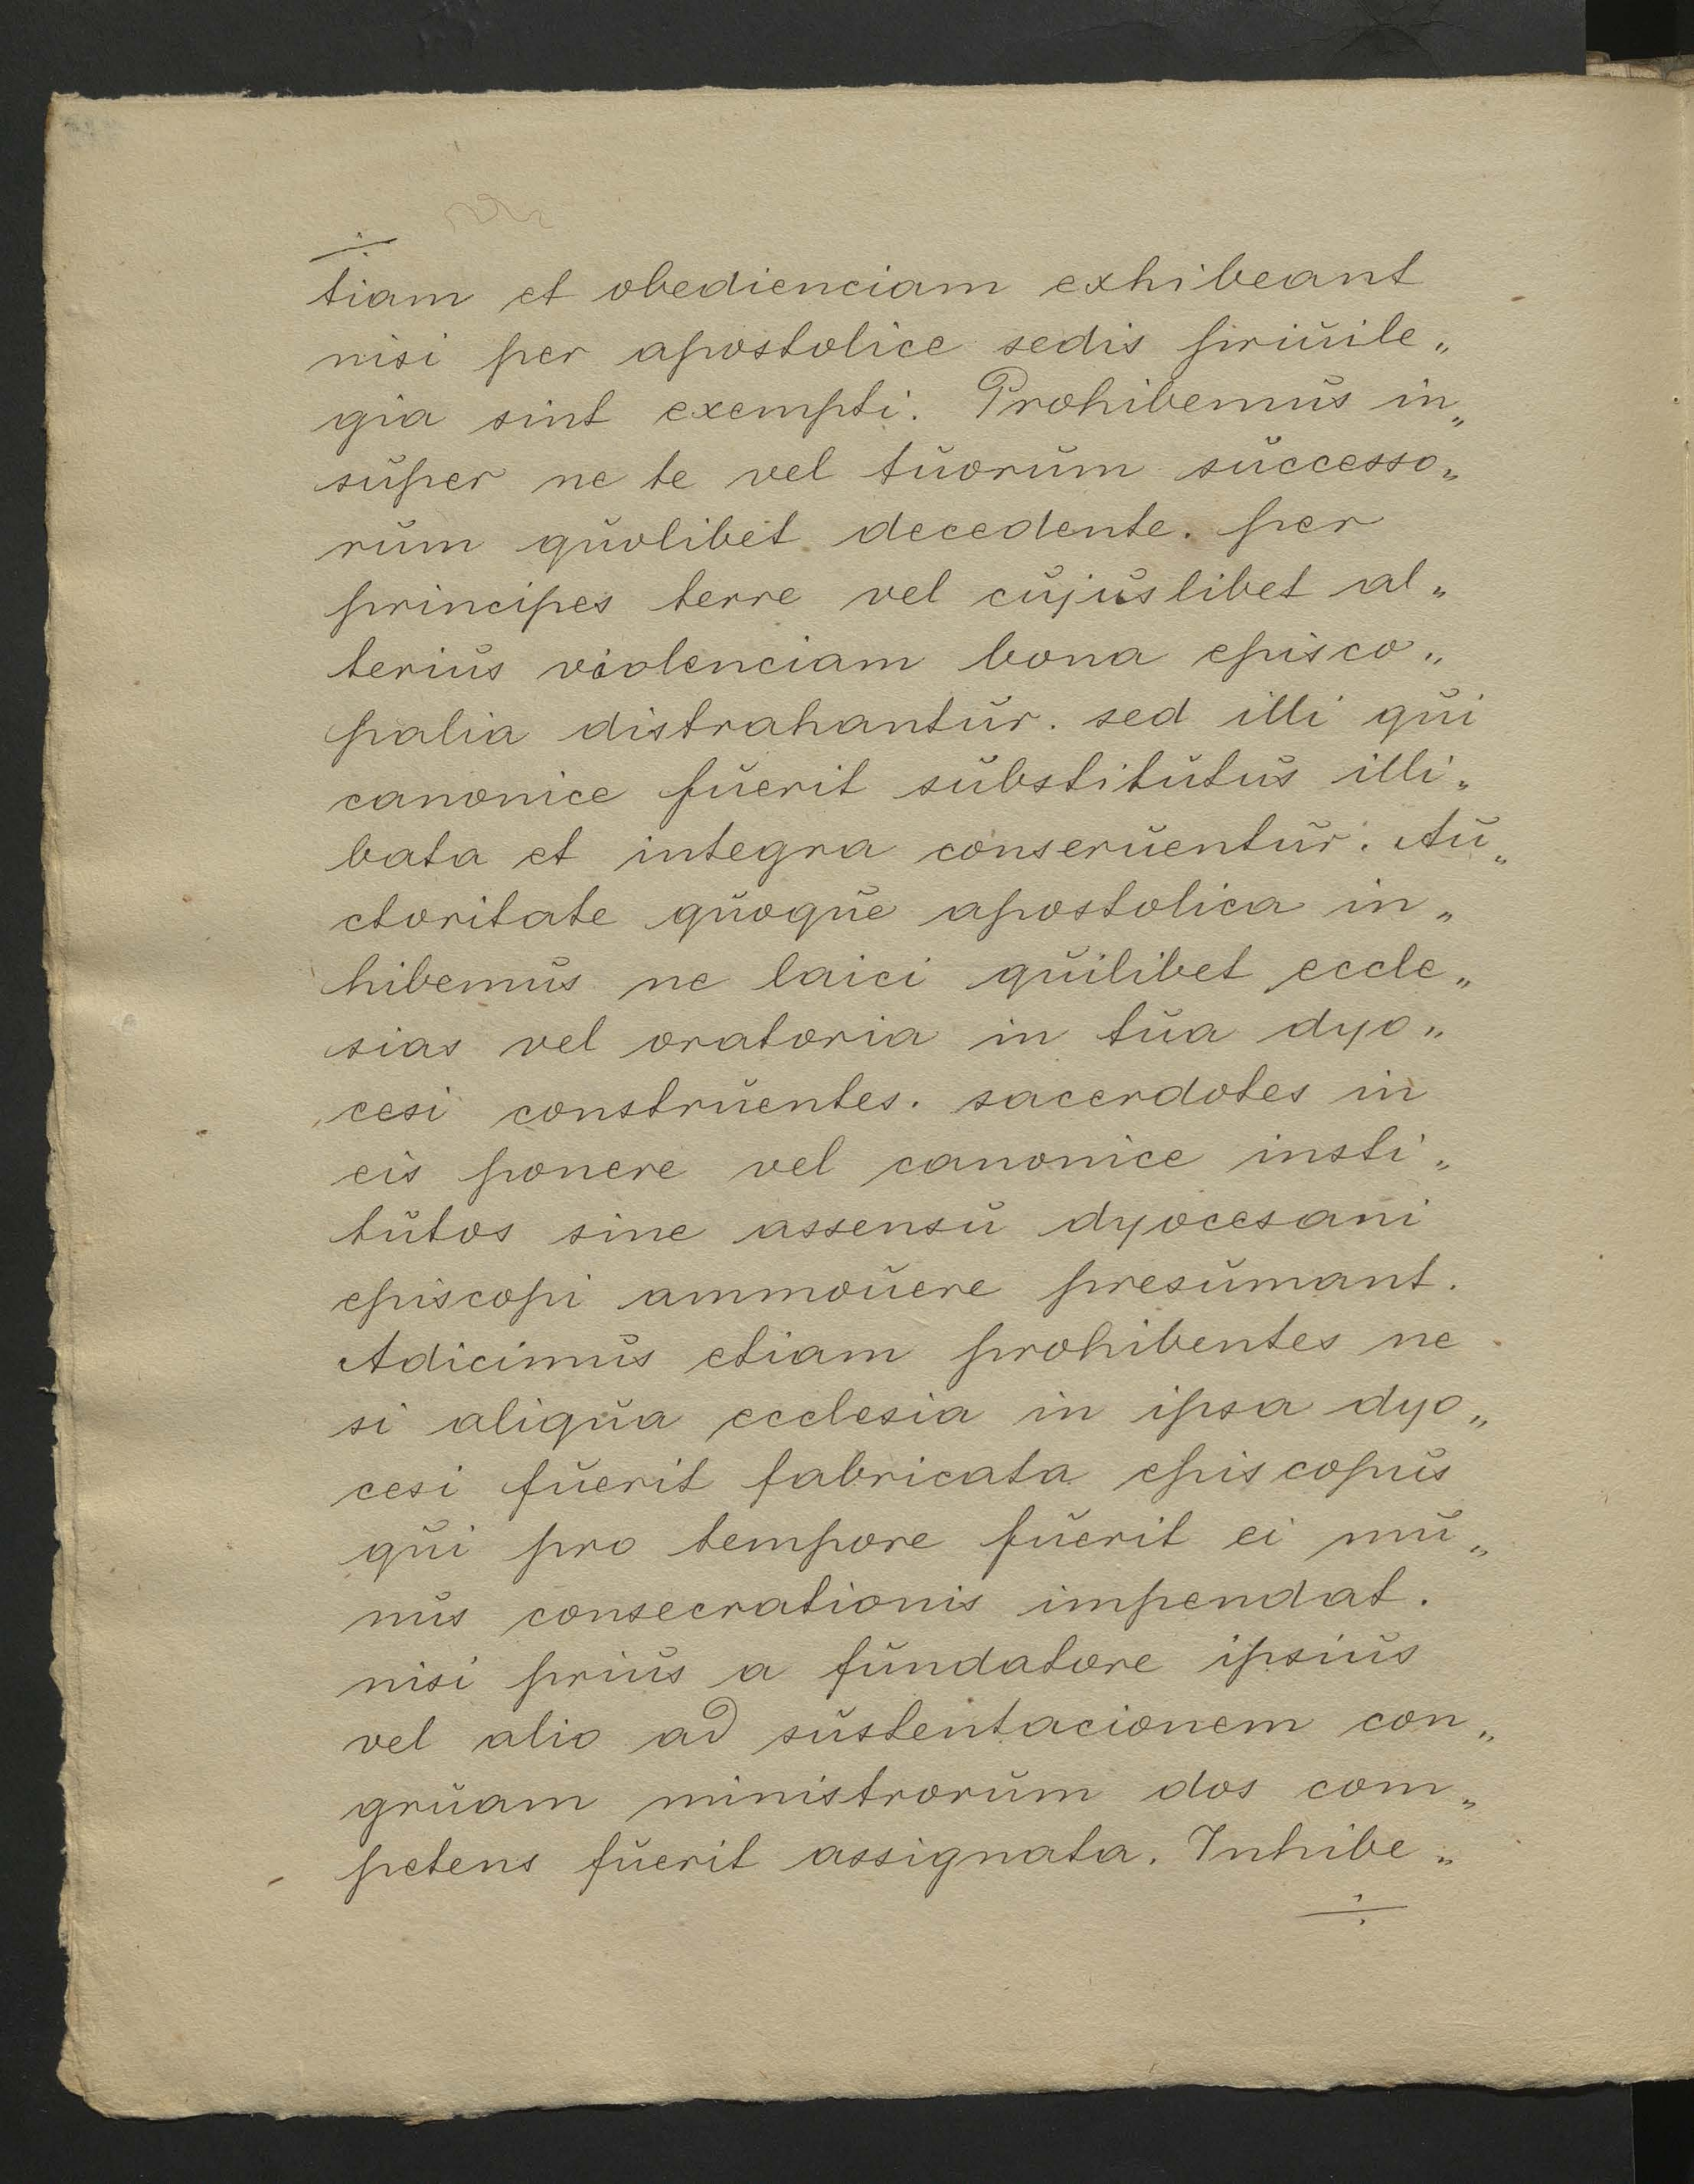 ÷
tiam et obedienciam exhibeant
nisi per apostolice sedis priuile„
gia sint exempti. Prohibemus in„
super ne te vel tuorum successo„
rum quolibet decedente. per
principes terre vel cujuslibet al„
terius violenciam bona episco„
palia distrahantur. sed illi qui
canonice fuerit substitutus illi„
bata et integra conseruentur. Au„
ctoritate quoque apostolica in„
hibemus ne laici quilibet eccle„
sias vel oratoria in tua dyo„
cesi construentes. sacerdotes in
eis ponere vel canonice insti„
tutos sine assensu dyocesani
episcopi ammouere presumant.
Adicimus etiam prohibentes ne
si aliqua ecclesia in ipsa dyo„
cesi fuerit fabricata episcopus
qui pro tempore fuerit ei mu„
nus consecrationis impendat.
nisi prius a fundatore ipsius
vel alio ad sustentacionem con„
gruam ministrorum dos com„
petens fuerit assignata. Inhibe„
÷